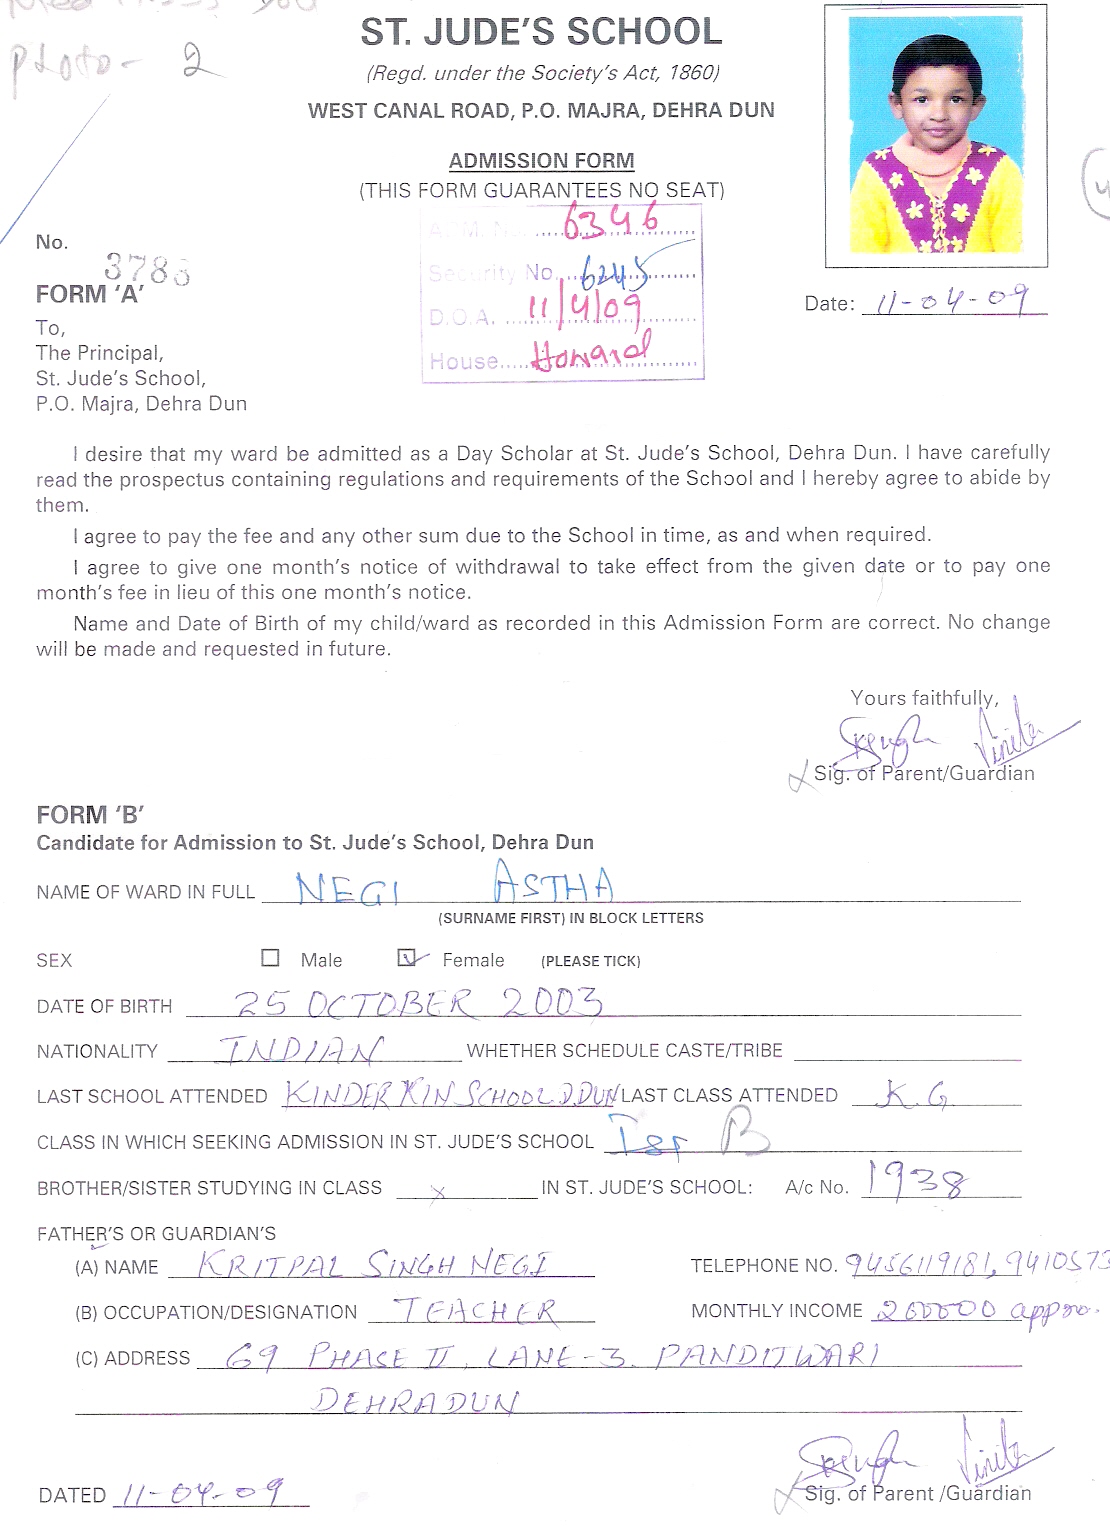 Photo - 2
ST. JUDE'S SCHOOL
(Regd. under the Society's Act, 1860)
WEST CANAL ROAD, P.O. MAJRA, DEHRA DUN
ADMISSION FORM
(THIS FORM GUARANTEES NO SEAT)
ADM. No. 6346
No. 3786
Security No. 6245
FORM 'A'
Date: 11-04-09
D.O.A. 11/4/09
To,
The Principal,
House Howard
St. Jude's School,
P.O. Majra, Dehra Dun
I desire that my ward be admitted as a Day Scholar at St. Jude's School, Dehra Dun. I have carefully
read the prospectus containing regulations and requirements of the School and I hereby agree to abide by
them.
I agree to pay the fee and any other sum due to the School in time, as and when required.
I agree to give one month's notice of withdrawal to take effect from the given date or to pay one
month's fee in lieu of this one month's notice.
Name and Date of Birth of my child/ward as recorded in this Admission Form are correct. No change
will be made and requested in future.
Yours faithfully,
Vinita
Sig. of Parent/Guardian
FORM 'B'
Candidate for Admission to St. Jude's School, Dehra Dun
NAME OF WARD IN FULL NEGI ASTHA
(SURNAME FIRST) IN BLOCK LETTERS
SEX Male Female (PLEASE TICK)
DATE OF BIRTH 25 OCTOBER 2003
NATIONALITY INDIAN WHETHER SCHEDULE CASTE/TRIBE
LAST SCHOOL ATTENDED KINDER KIN SCHOOL D.DUN LAST CLASS ATTENDED K.G.
CLASS IN WHICH SEEKING ADMISSION IN ST. JUDE'S SCHOOL Ist B
BROTHER/SISTER STUDYING IN CLASS x IN ST. JUDE'S SCHOOL: A/c No. 1938
FATHER'S OR GUARDIAN'S
(A) NAME KRITPAL SINGH NEGI TELEPHONE NO. 9456119181, 9410573
(B) OCCUPATION/DESIGNATION TEACHER MONTHLY INCOME 200000 approx.
(C) ADDRESS 69 PHASE II, LANE-3. PANDITWARI
DEHRADUN
Vinita
DATED 11-04-09 Sig. of Parent /Guardian